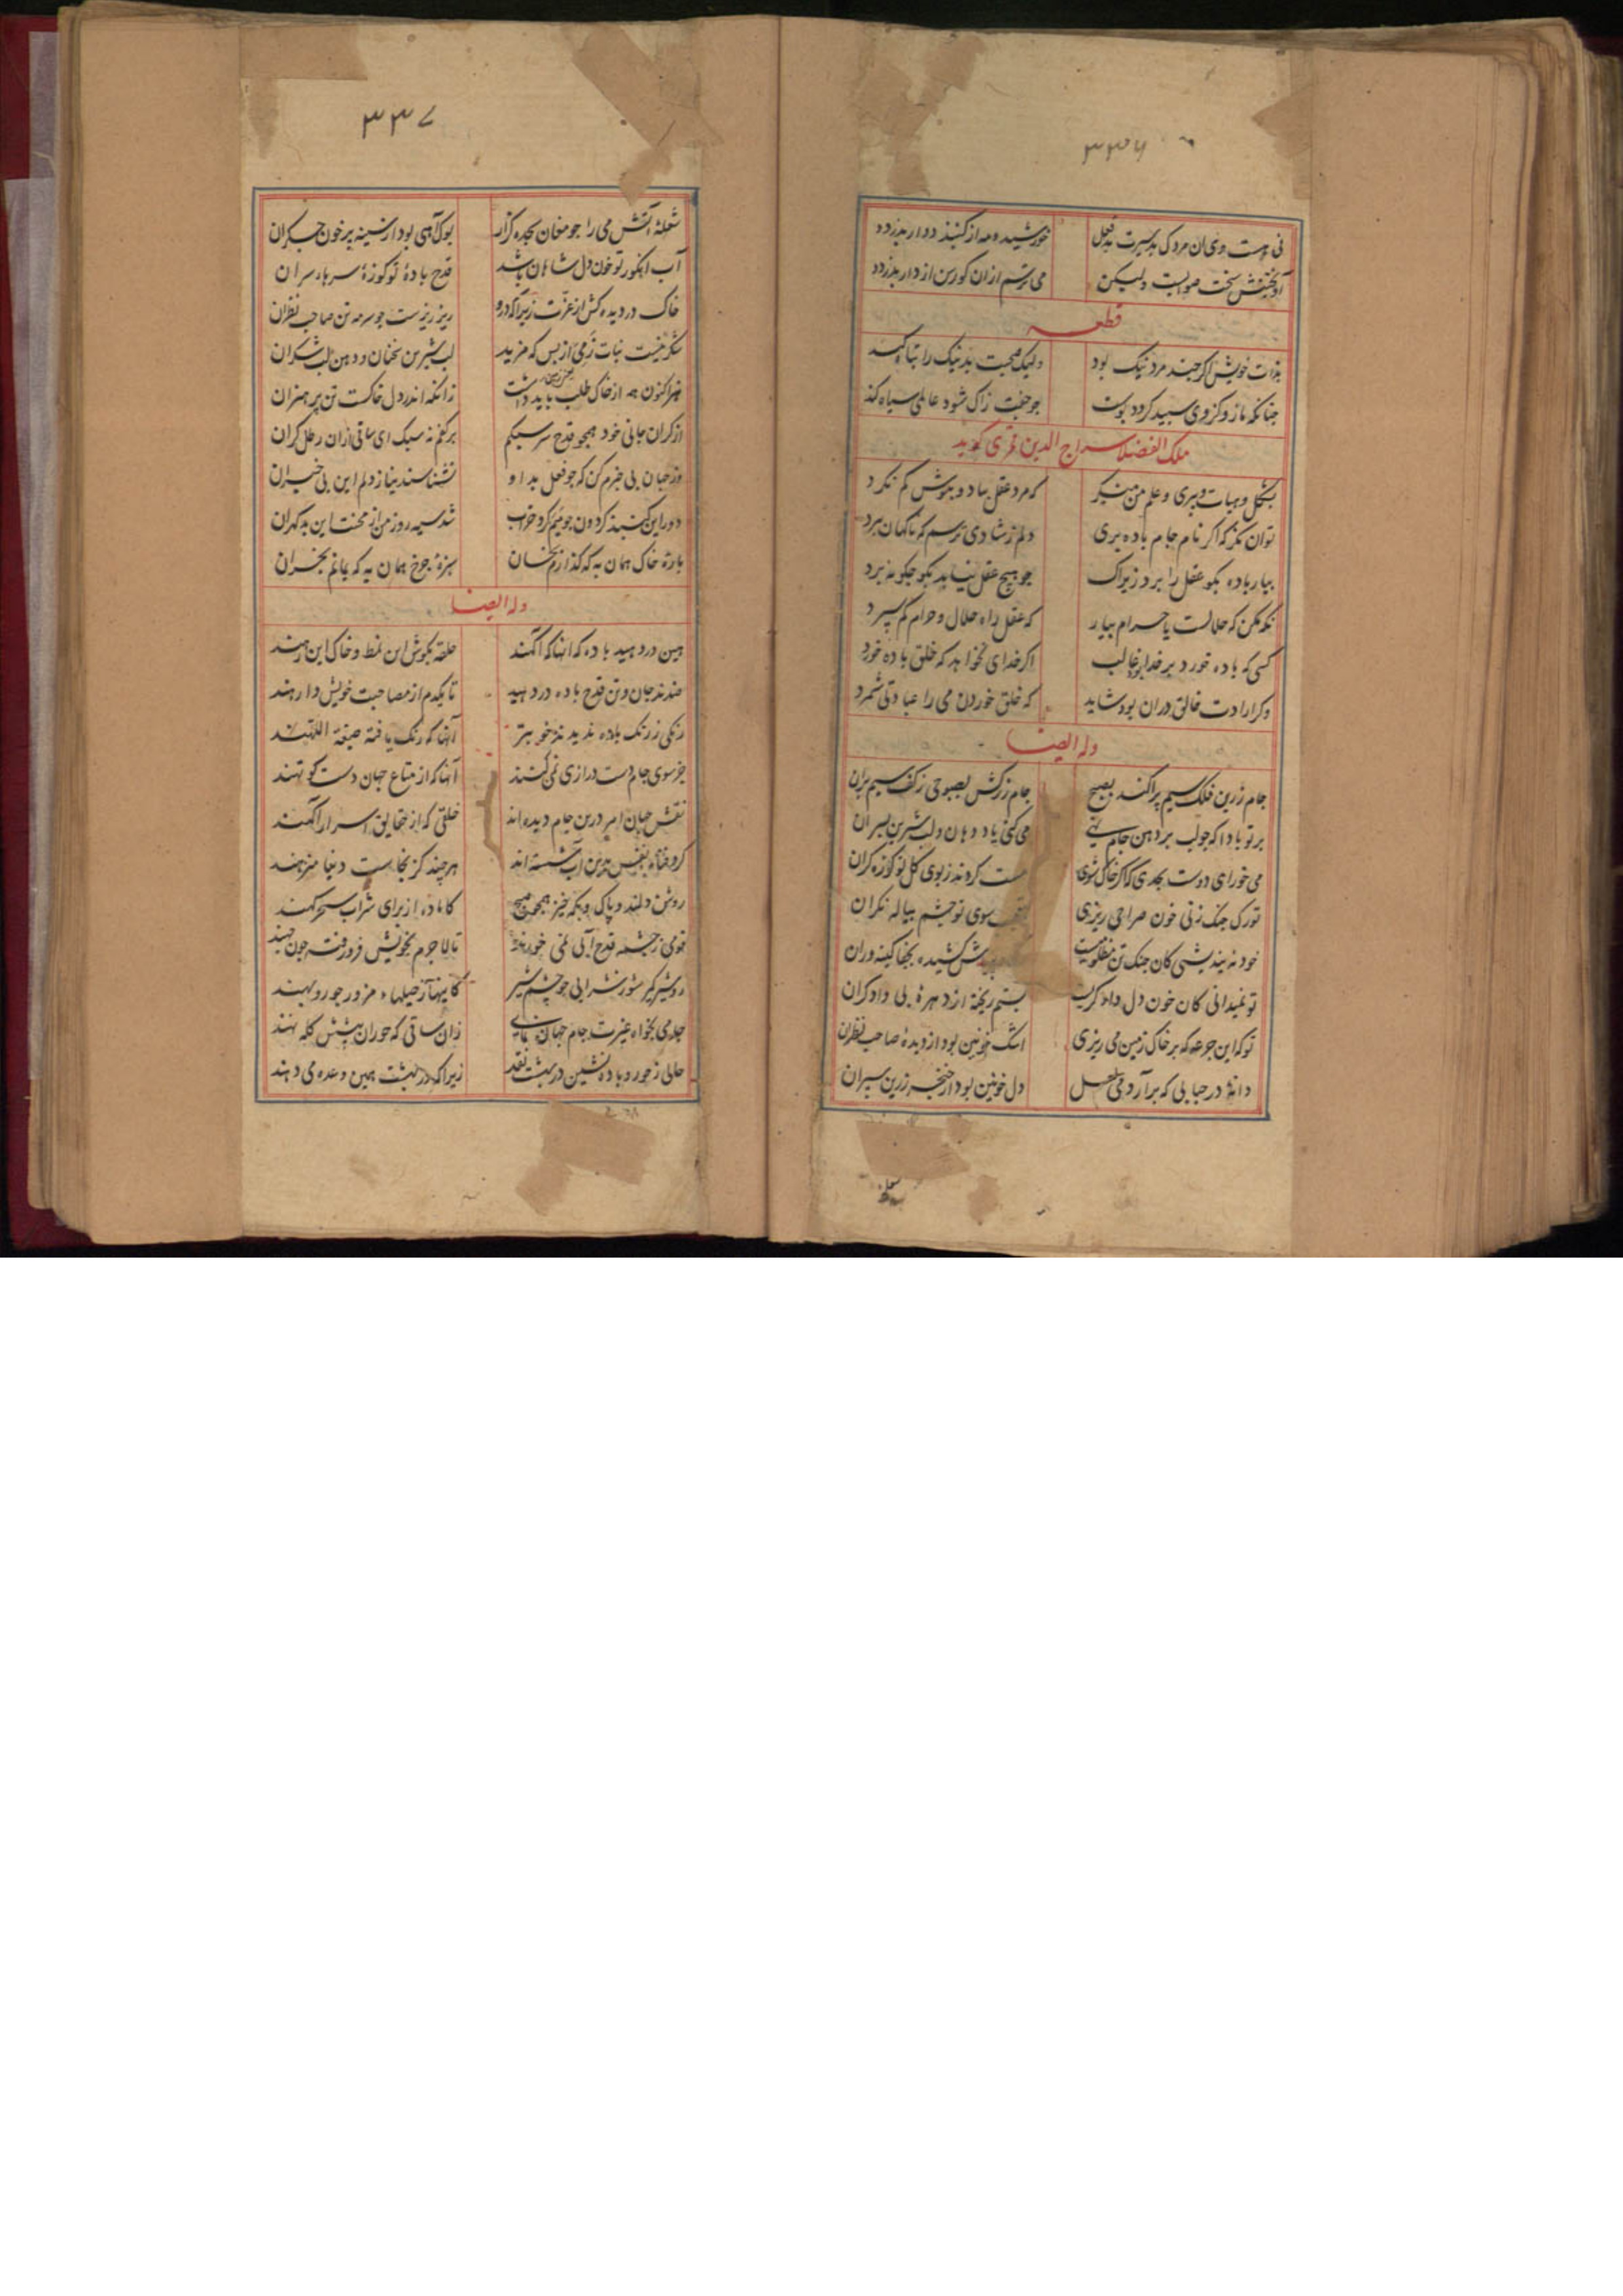 ۳۳۶
نی هست وی آن مردک بد سیرت بد فعل خورشید و مه از گنبد دوار بدزدد
آویختنش سخت صوابست ولیکن می ترسم ازان کو رسن از دار بدزدد
قطعه
بذات خویش اکر چند مرد نیک بود ولیک صحبت بد نیک را تباه کند
چنانکه مازو کزوی سپید کردد پوست چو جفت زاک شود عالمی سیاه کند
ملک الفضلا سراج الدین قمری گوید
بشکل و هیات و پیری و علم من منکر که مرد عقل بباد و بنوش کم نکرد
توان نکر که اکر نام جام باده بری دلم ز شادی ترسم که ناکهان بپرد
بیار باده بکو عقل را برد زیراک چو هیچ عقل نیاید بکو چکونه برد
نکه مکن که حلالست یا حرام بیار که عقل راه حلال و حرام کم سپرد
کسی که باده خورد بر خدا بود غالب اکر خدای نخواهد که خلق باده خورد
وکر ارادت خالق دران بود شاید که خلق خوردن می را عبادتی شمرد
وله ایضا
جام زرین فلک سیم پراکند بصبح جام زرکش بصبوحی ز کف سیم بران
بر تو بادا که چو لب بر دهن جام نهی می کنی یاد دهان و لب شیرین پسران
می خور ای دوست بحدی که اکر خاک شوی مست کردند ز بوی کل تو کوزه کران
تو رک چنک زنی خون صراحی ریزی سوی تو چشم پیاله نکران
خود نه بیندیشی کان چنک تن مظلومیست کشیده بجفا کینه وران
تو نمیدانی کان خون دل داد کریست بستم ریخته از دهره بی دادکران
تو که این جرعه که بر خاک زمین می ریزی اشک خونین بود از دیده صاحب نظران
دانه در حبابی که برآرد می لعل دل خونین بود از خنجر زرین سپران
شعله
۳۳۷
شعله آتش می را چو مغان سجده کزار بوک آهی بود از سینه پر خون جکران
آب انکور تو خون دل شاهان باشد قدح باده تو کوزه سر باد سران
خاک در دیده کش از عزت زیرا که درو ریز ریزست چو سرمه تن صاحب نظران
شکر نیست نبات زمی از بس که مزید لب شیرین سخنان و دهن لب شکران
هنر اکنون همه از خاک طلب باید داشت زانکه اندر دل خاکست تن پر هنران
از کران جانی خود همچو قدح سر سبکم بر کفم نه سبک ای ساقی ازان رطل کران
وز جهان بی خبرم کن که چو فعل بد او نشناسند بنازد دلم این بی خبران
دور این کنبد کردون چو بنم کرد خراب شد سیه روز من از محنت این بد کهران
باره خاک همان به که کذارم بخسان سبزه چرخ همان به که بمانم بخران
وله ایضا
هین در دهید باده که آنها که آکهند حلقه بکوش این نمط و خاک این رهند
ضدند جان و تن قدح باده در دهید تا یکدم از مصاحبت خویش وا رهند
رنکی ز رنک باده ندیدند خوبتر آنها که رنک یافته صبغة اللهند
جز سوی جام دست درازی نمی کنند آنها که از متاع جهان دست کوتهند
نقش جهان امر درین جام دیده اند خلقی که از حقایق اسرار آکهند
کرد فنا ز نفس بدین آب شسته اند هر چند کز نجاست دنیا منزهند
روشن دلند و پاک و بکه خیز همچو صبح کاماده از برای شراب سحرکهند
قومی ز چشمه قدح آبی نمی خورند تا لاجرم بخویش فرو رفته چون چهند
رو شیر کیر شو ز شرابی چو چشم شیر کاینها ز حیلهاء مزور چو روبهند
جامی بخواه غیرت جام جهان نمای زان ساقی که حوران پیشش کله نهند
حالی ز حور و باده نشین در بهشت نقد زیرا که در بهشت همین وعده می دهند